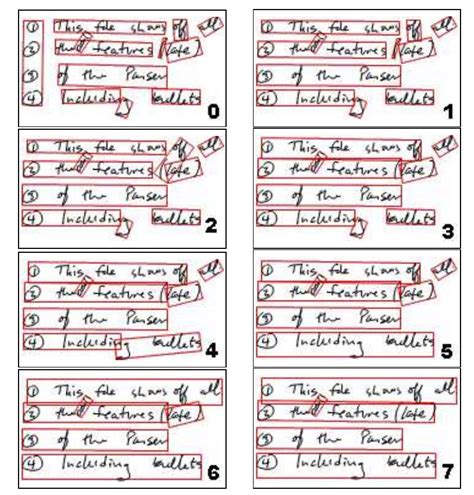 ① This file shows off all
② the features (late)
③ of the Parser
④ Including bullets
0
① This file shows off all
② the features (late)
③ of the Parser
④ Including bullets
1
① This file shows off all
② the features (late)
③ of the Parser
④ Including bullets
2
① This file shows off all
② the features (late)
③ of the Parser
④ Including bullets
3
① This file shows off all
② the features (late)
③ of the Parser
④ Including bullets
4
① This file shows off all
② the features (late)
③ of the Parser
④ Including bullets
5
① This file shows off all
② the features (late)
③ of the Parser
④ Including bullets
6
① This file shows off all
② the features (late)
③ of the Parser
④ Including bullets
7